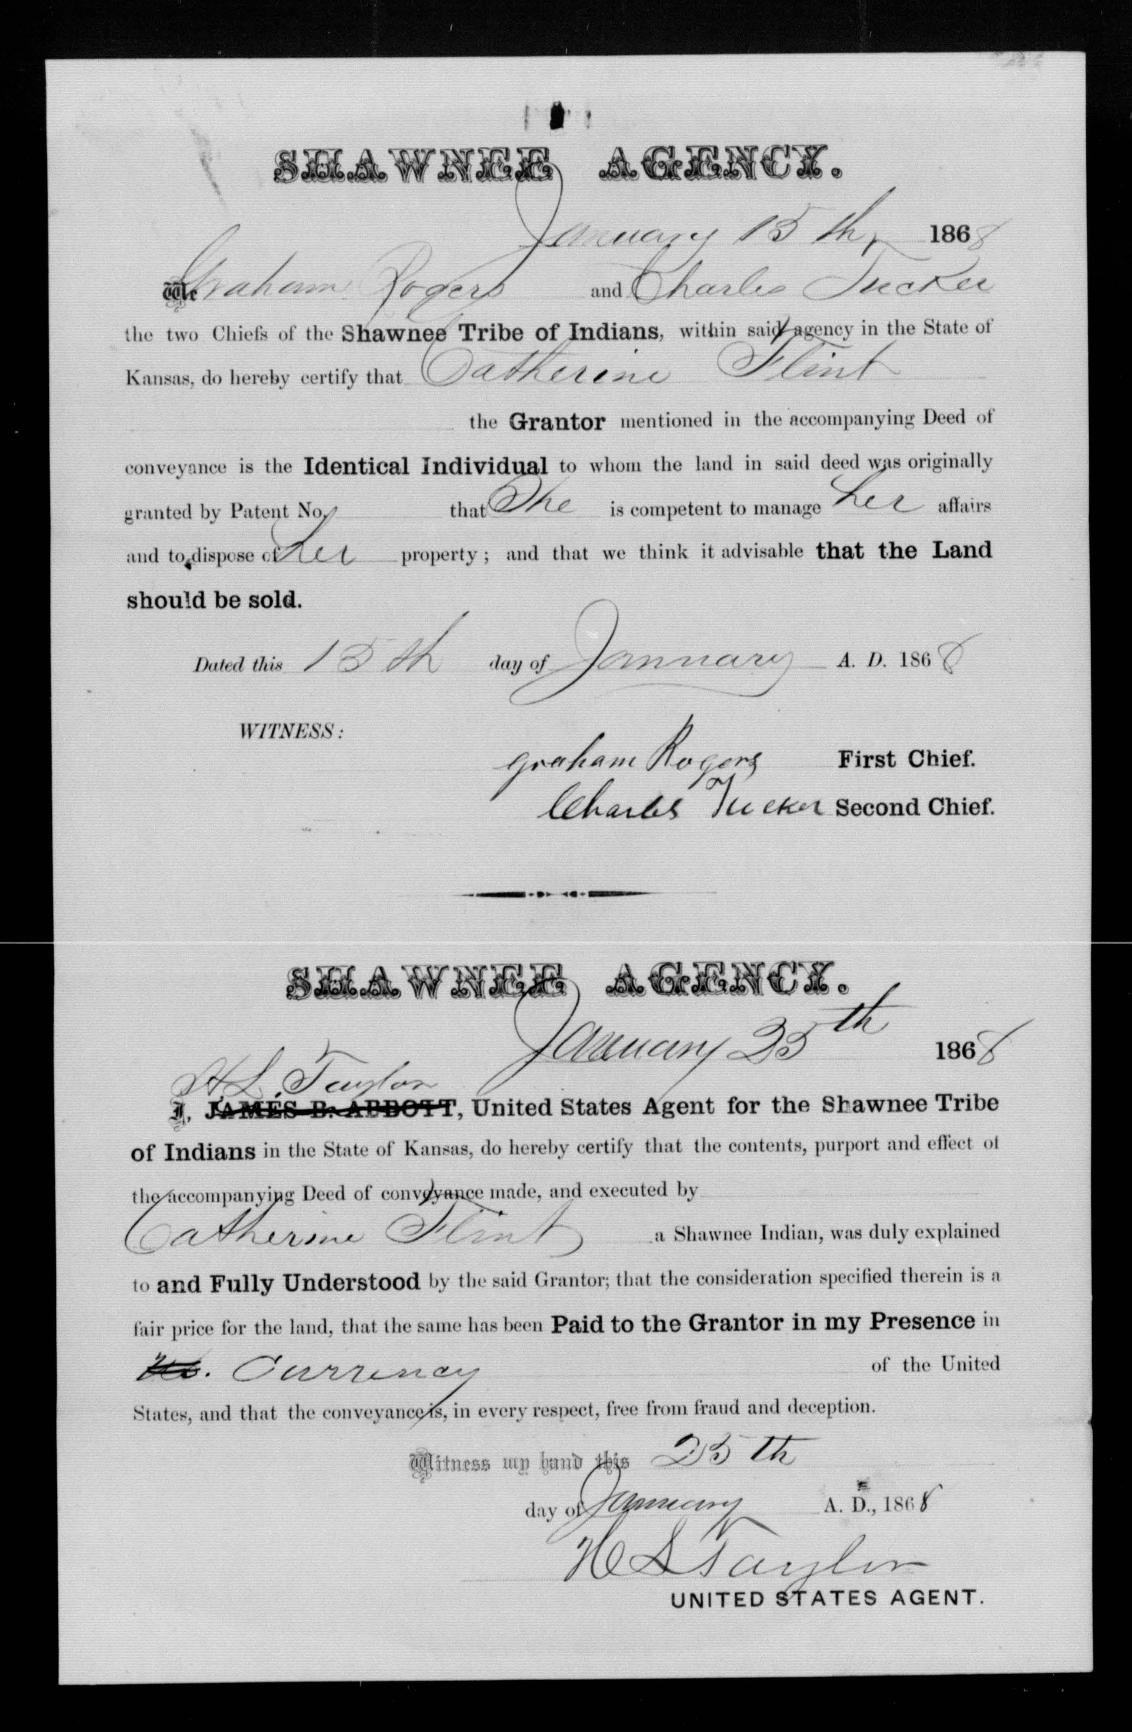 SHAWNEE AGENCY.
January 15th, 1868
We Graham Rogers and Charles Tucker
the two Chiefs of the Shawnee Tribe of Indians, within said agency in the State of
Kansas, do hereby certify that Catherine Flint
the Grantor mentioned in the accompanying Deed of
conveyance is the Identical Individual to whom the land in said deed was originally
granted by Patent No, that She is competent to manage her affairs
and to dispose of her property; and that we think it advisable that the Land
should be sold.
Dated this 15th day of January A. D. 1868
WITNESS:
Graham Rogers First Chief.
Charles Tucker Second Chief.
SHAWNEE AGENCY.
January 25th 1868
H L Taylor
I, JAMES B. ABBOTT, United States Agent for the Shawnee Tribe
of Indians in the State of Kansas, do hereby certify that the contents, purport and effect of
the accompanying Deed of conveyance made, and executed by
Catherine Flint a Shawnee Indian, was duly explained
to and Fully Understood by the said Grantor; that the consideration specified therein is a
fair price for the land, that the same has been Paid to the Grantor in my Presence in
Currency of the United
States, and that the conveyance is, in every respect, free from fraud and deception.
Witness my hand this 25th
day of January A. D., 1868
H L Taylor
UNITED STATES AGENT.